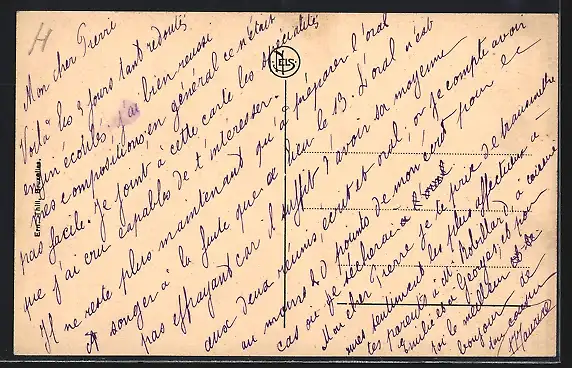 H
NELS
Ern. Thill, Bruxelles.
Mon cher Pierre
Voilà les 3 jours tant redoutés
enfin écoulés, j'ai bien réussi
mes compositions, en général ce n'était
pas facile. Je joint à cette carte les spécialités
que j'ai cru capables de t'intéresser.
Il ne reste plus maintenant qu'à préparer l'oral
et songer à la fuite que a lieu le 13. L'oral n'est
pas effrayant car il suffit d'avoir sa moyenne
aux deux réunis écrit et oral, or je compte avoir
au moins 20 points de mon écrit pour le
cas où je sécherai à l'oral
Mon cher Pierre je te prie de transmettre
mes sentiments les plus affectueux à
tes parents, à Robillard, à
Emilie et à Georges, et pour
toi le meilleur
bonjour de
ton cousin
Maurice